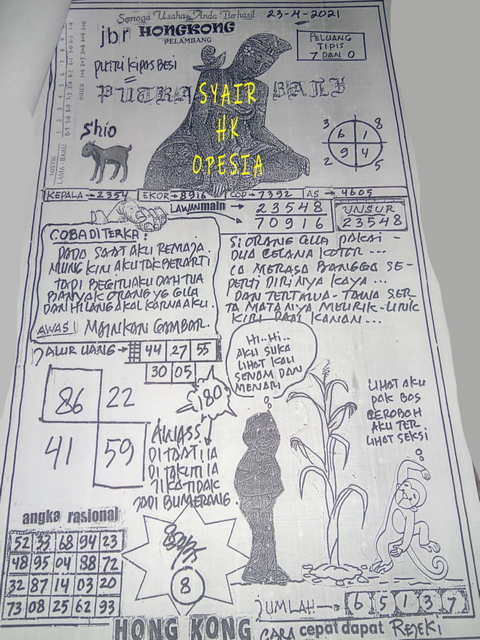 Semoga Usaha Anda Berhasil
23-4-2021
jbr HONGKONG
PALEMBANG
PUTRI KIPAS BESI
PELUANG
TIPIS
7 DAN 0
PUTRA BALI
SYAIR
HK
OPESIA
Shio
3 8
6 1
9 4
2 5
KEPALA → 2354 EKOR → 8916 COP → 7392 AS → 4605
LAWAN main → 23548
70916
UNSUR
23548
COBA DITERKA:
PADA SAAT AKU REMAJA.
MUNGKIN AKU TAK BERARTI
TAPI BEGITU AKU DAH TUA
BANYAK ORANG YG GILA
DAN HILANG AKAL KARNA AKU.
AWAS! MAINKAN GAMBAR.
SI ORANG GILA PAKAI -
DUA CELANA KOTOR ...
IA MERASA BANGGA SE-
PERTI DIRINYA KAYA ...
DAN TERTAWA-TAWA SER
TA MATANYA MELIRIK-LIRIK
KIRI DAN KANAN ...
JALUR UANG → 44 27 55
30 05
80
86 22
41 59
HI..HI..
AKU SUKA
LIHAT KAU
SENAM DAN
MENARI
LIHAT AKU
PAK BOS
BEROBOH
AKU TER
LIHAT SEKSI
AWASS
JIKA TIDAK
JADI BUMERANG.
angka rasional
52 33 68 94 23
48 95 04 98 72
32 87 14 03 20
73 08 25 62 93
8
JUMLAH → 6 5 1 3 7
HONG KONG CARA cepat dapat REJEKI